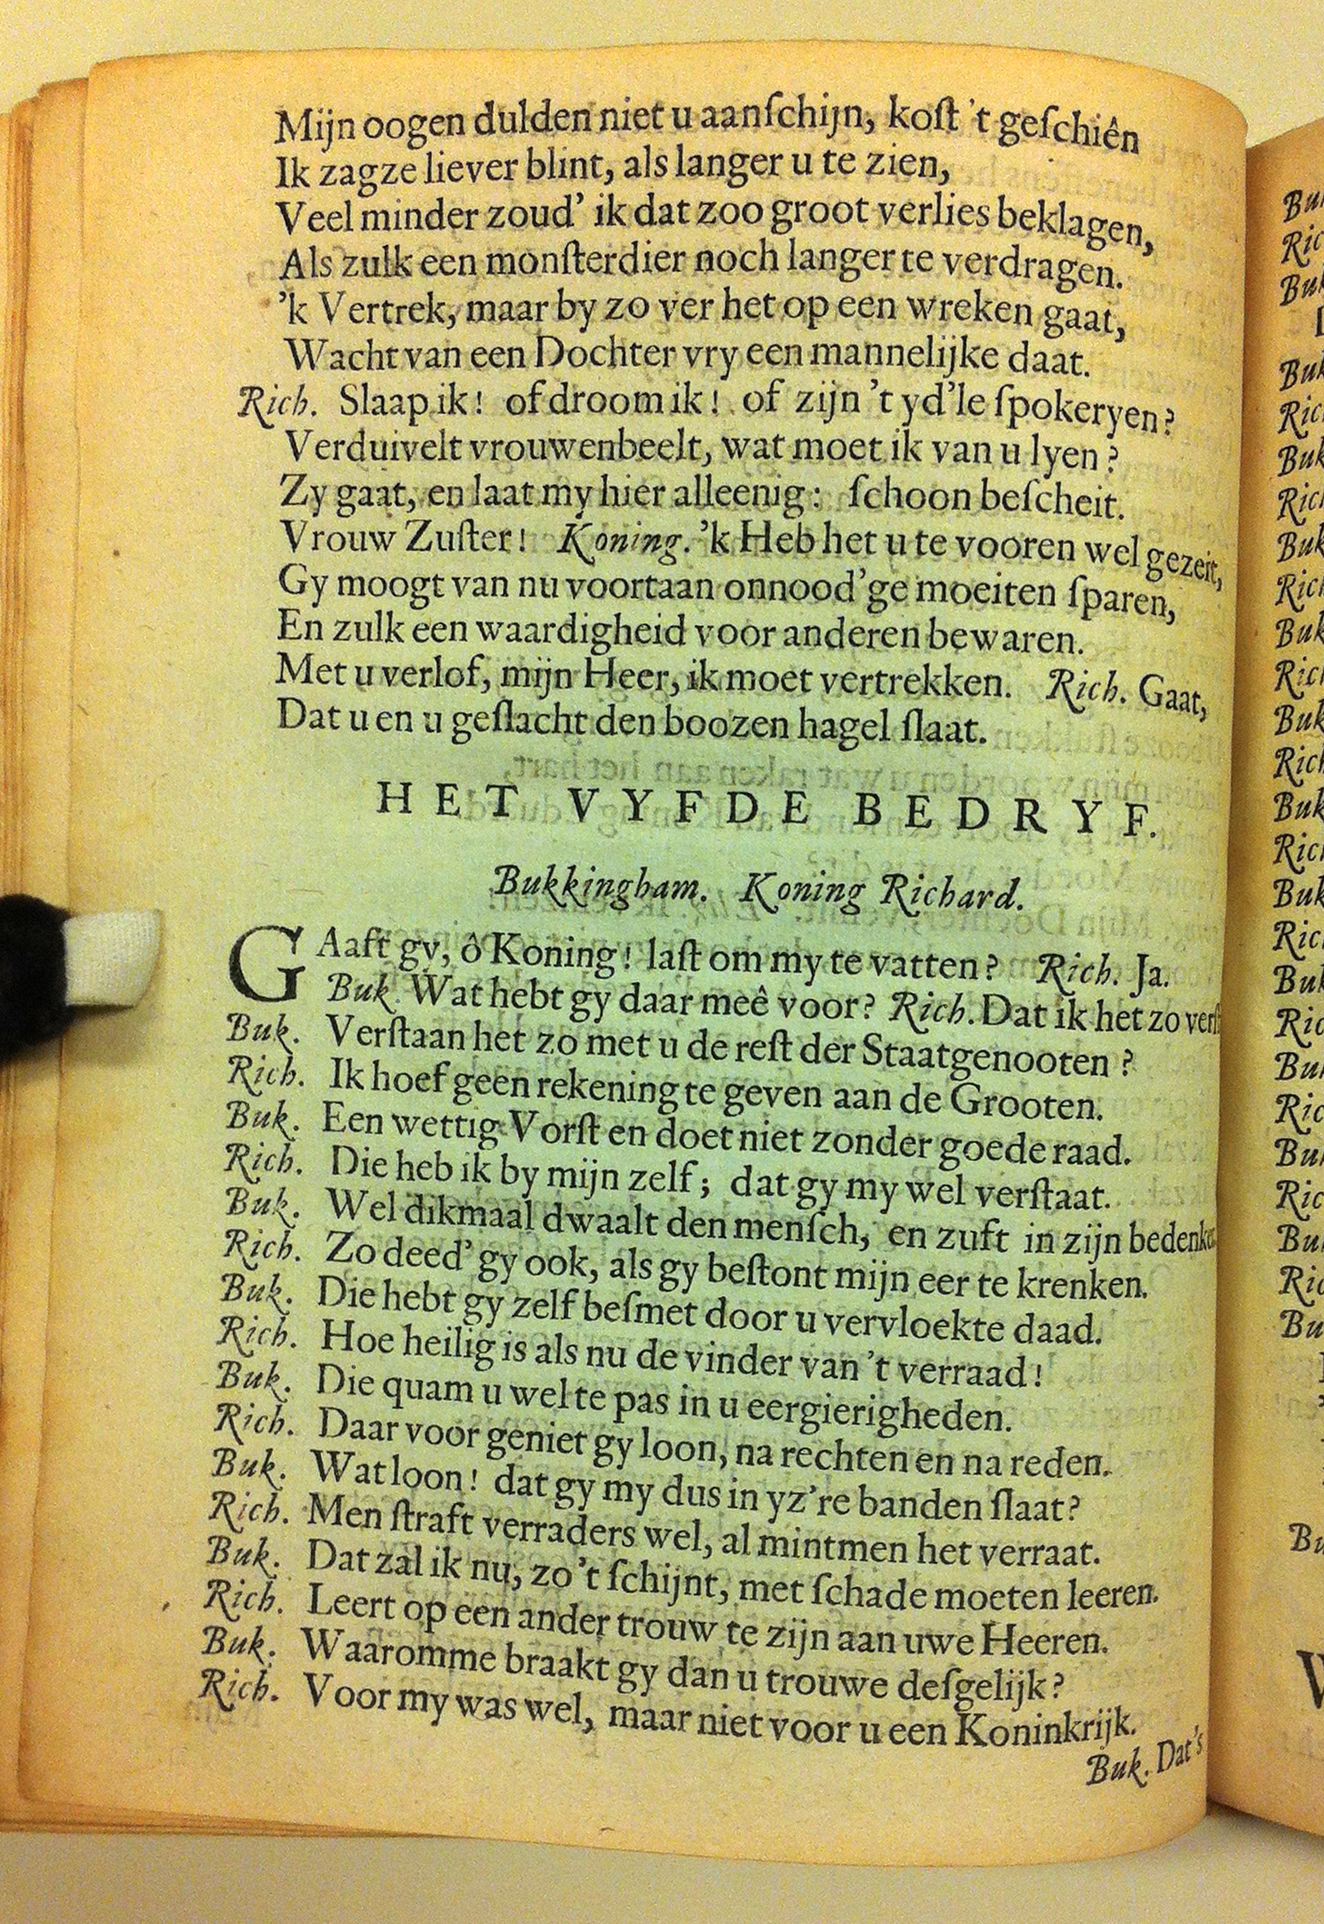 Mijn oogen dulden niet u aanſchijn, koſt 't geſchiên
Ik zagze liever blint, als langer u te zien,
Veel minder zoud' ik dat zoo groot verlies beklagen,
Als zulk een monſterdier noch langer te verdragen.
'k Vertrek, maar by zo ver het op een wreken gaat,
Wacht van een Dochter vry een mannelijke daat.
Rich. Slaap ik! of droom ik! of zijn 't yd'le ſpokeryen?
Verduivelt vrouwenbeelt, wat moet ik van u lyen?
Zy gaat, en laat my hier alleenig: ſchoon beſcheit.
Vrouw Zuſter! Koning. 'k Heb het u te vooren wel gezeit,
Gy moogt van nu voortaan onnood'ge moeiten ſparen,
En zulk een waardigheid voor anderen bewaren.
Met u verlof, mijn Heer, ik moet vertrekken. Rich. Gaat,
Dat u en u geſlacht den boozen hagel ſlaat.
HET VYFDE BEDRYF.
Bukkingham. Koning Richard.
GAaft gy, ô Koning! laſt om my te vatten? Rich. Ja.
Buk. Wat hebt gy daar meê voor? Rich. Dat ik het zo
Buk. Verſtaan het zo met u de reſt der Staatgenooten?
Rich. Ik hoef geen rekening te geven aan de Grooten.
Buk. Een wettig Vorſt en doet niet zonder goede raad.
Rich. Die heb ik by mijn zelf; dat gy my wel verſtaat.
Buk. Wel dikmaal dwaalt den menſch, en zuft in zijn
Rich. Zo deed' gy ook, als gy beſtont mijn eer te krenken.
Buk. Die hebt gy zelf beſmet door u vervloekte daad.
Rich. Hoe heilig is als nu de vinder van 't verraad!
Buk. Die quam u wel te pas in u eergierigheden.
Rich. Daar voor geniet gy loon, na rechten en na reden.
Buk. Wat loon! dat gy my dus in yz're banden ſlaat?
Rich. Men ſtraft verraders wel, al mint men het verraat.
Buk. Dat zal ik nu, zo 't ſchijnt, met ſchade moeten leeren.
Rich. Leert op een ander trouw te zijn aan uwe Heeren.
Buk. Waaromme braakt gy dan u trouwe deſgelijk?
Rich. Voor my was wel, maar niet voor u een Koninkrijk.
Buk. Dat's